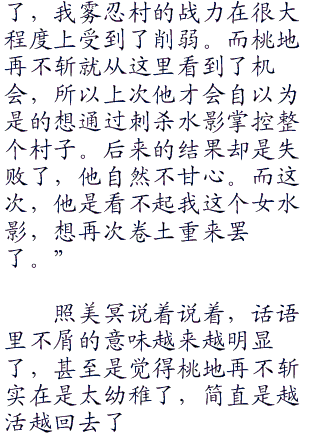 了，我雾忍村的战力在很大
程度上受到了削弱。而桃地
再不斩就从这里看到了机
会，所以上次他才会自以为
是的想通过刺杀水影掌控整
个村子。后来的结果却是失
败了，他自然不甘心。而这
次，他是看不起我这个女水
影，想再次卷土重来罢
了。”
照美冥说着说着，话语
里不屑的意味越来越明显
了，甚至是觉得桃地再不斩
实在是太幼稚了，简直是越
活越回去了